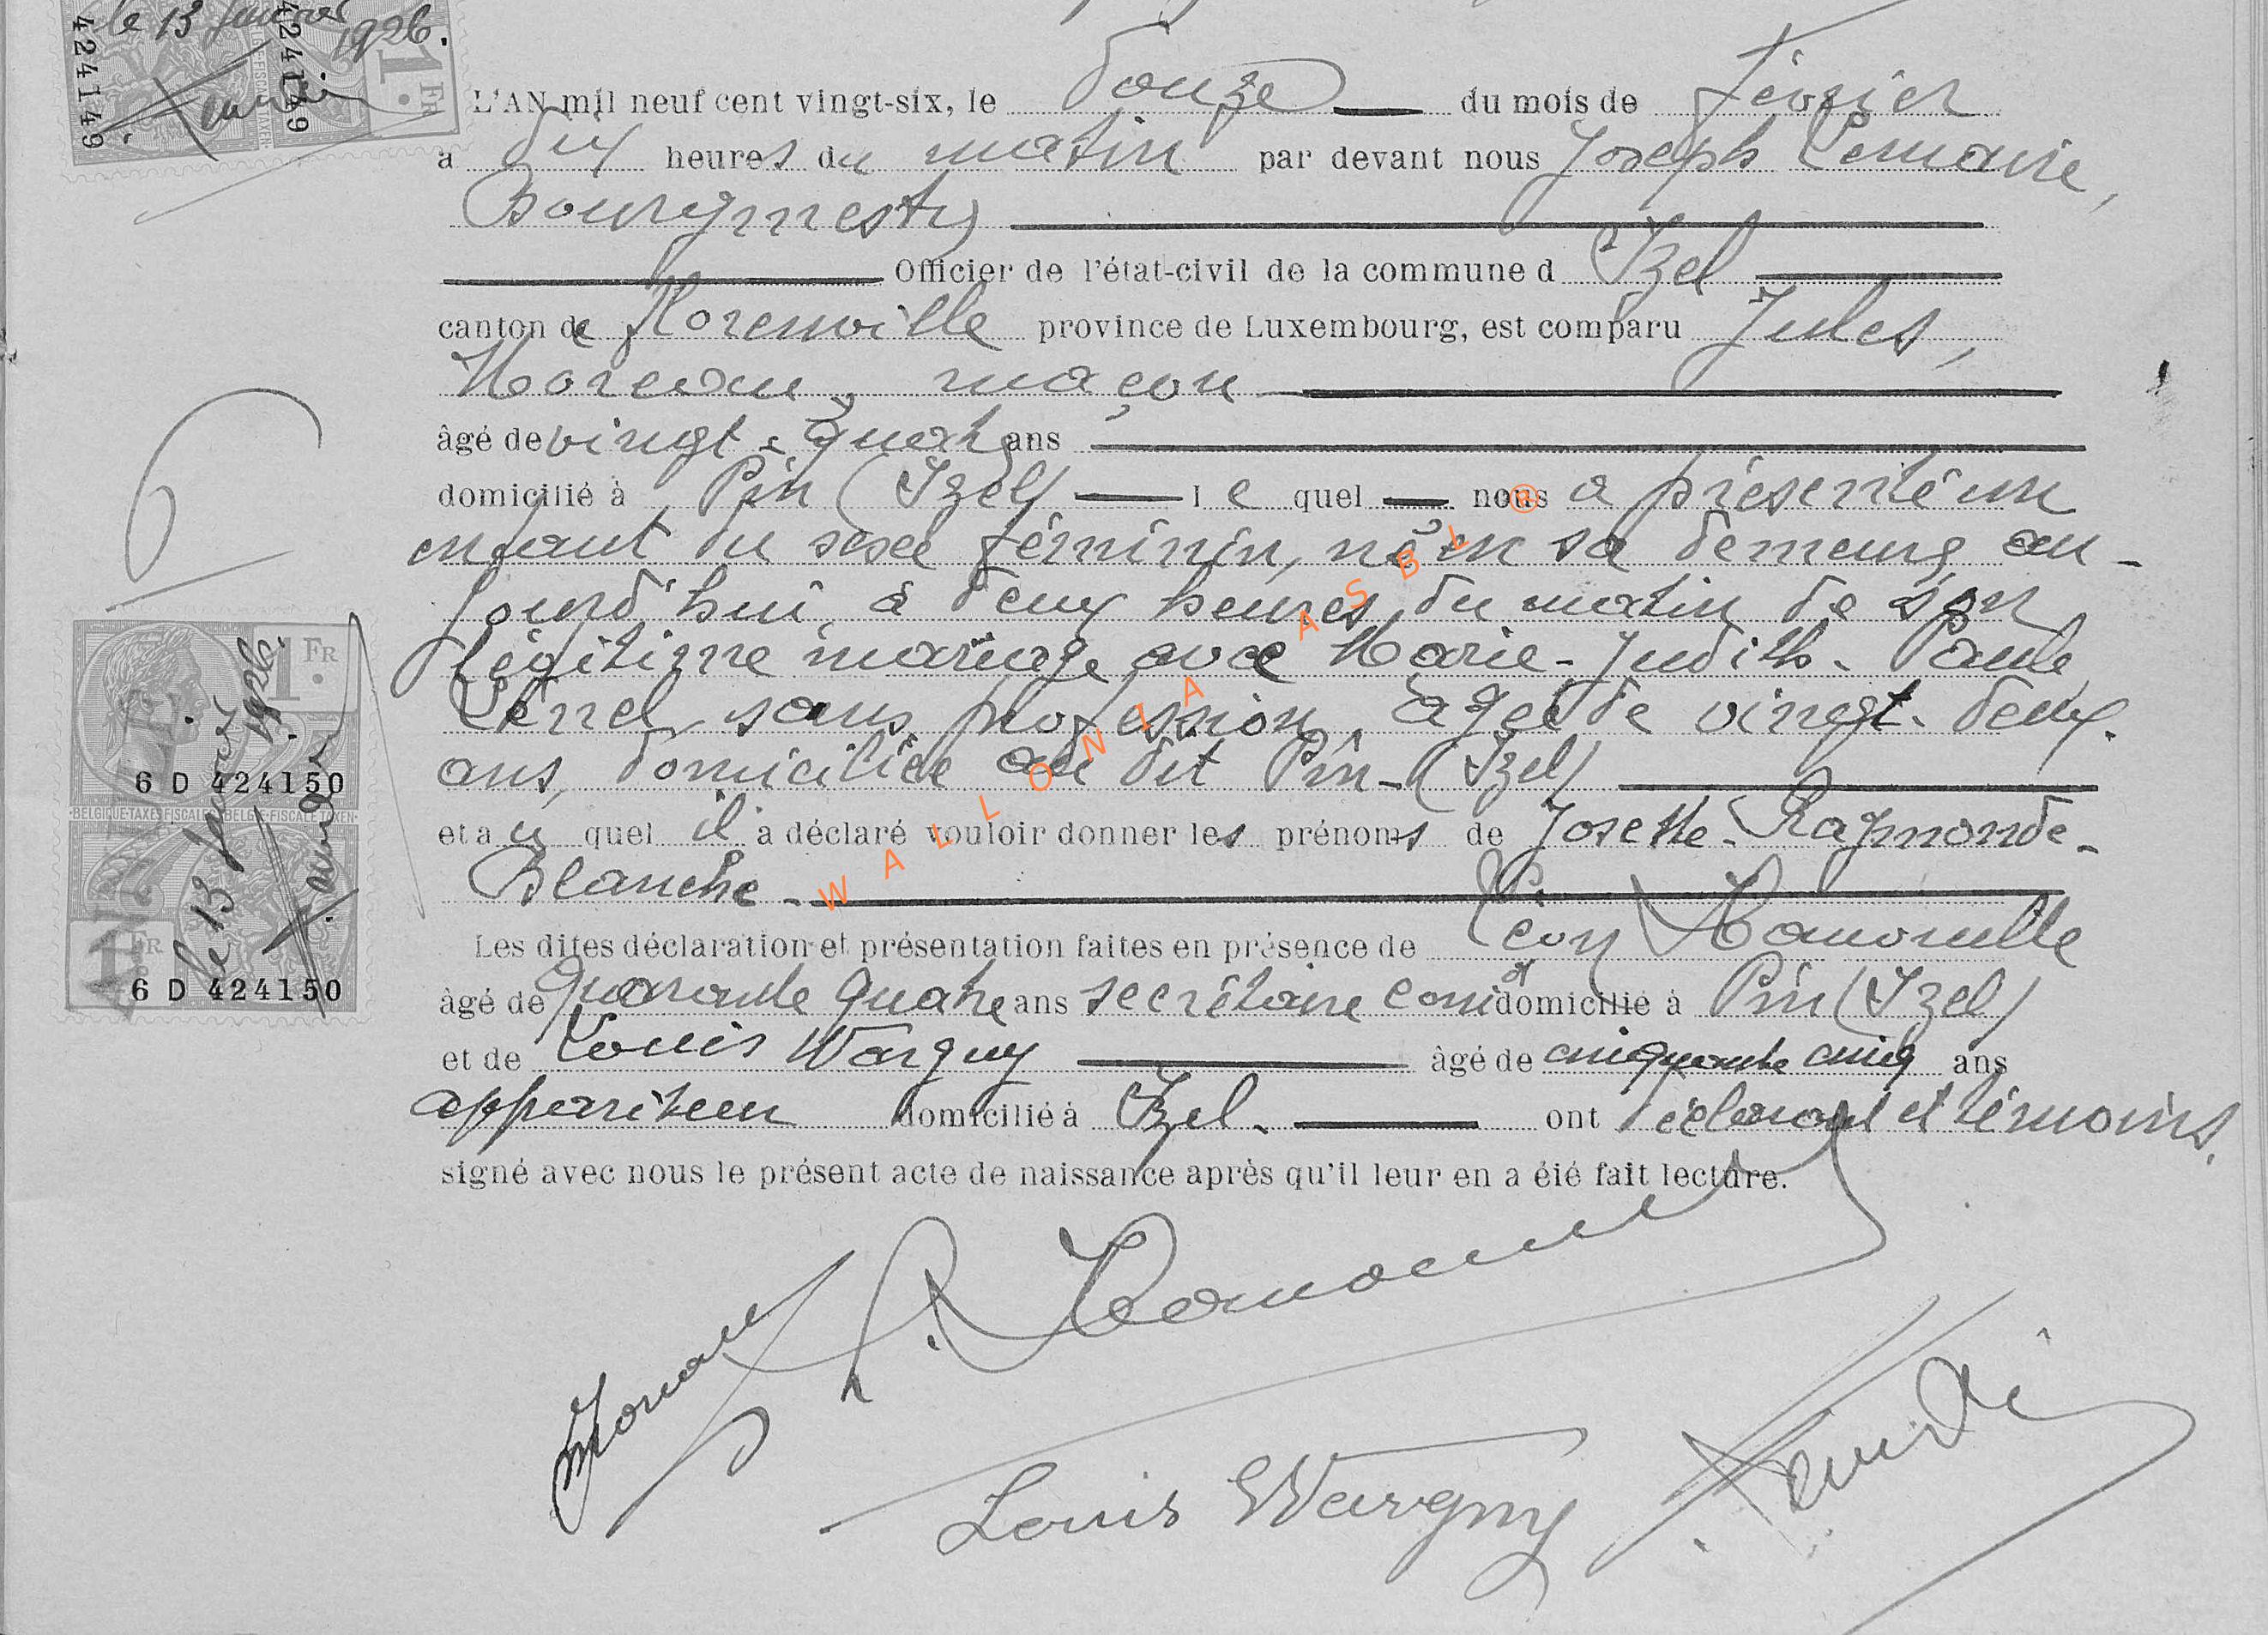 le 13 janvier
1926.
424149
424149
1 FR
L'AN mil neuf cent vingt-six, le douze du mois de février
a dix heures du matin par devant nous Joseph Lemaire,
Bourgmestre
Officier de l'état-civil de la commune d Izel
canton de Florenville province de Luxembourg, est comparu Jules,
Moreau, maçon
âgé de vingt-quatre ans
domicilié à Pin (Izel) le quel nous a présenté un
enfant du sexe féminin, né en sa demeure, au-
jourd'hui, à deux heures du matin de son
légitime mariage avec Marie-Judith-Paule
sans profession, âgée de vingt-deux
ans, domiciliée au dit Pin-(Izel)
et au quel il a déclaré vouloir donner les prénoms de Josette-Raymonde-
Blanche-
Les dites déclaration et présentation faites en présence de Léon
âgé de quarante quatre ans secrétaire comal domicilié à Pin (Izel)
et de Louis Wargny âgé de cinquante cinq ans
appariteur domicilié à Izel. ont déclarant et témoins.
signé avec nous le présent acte de naissance après qu'il leur en a été fait lecture.
6
1 FR
6 D 424150
BELGIQUE-TAXES FISCALES BELGIE-FISCALE TAXEN
le 13 janvier 1926.
1 FR
6 D 424150
WALLONIA ASBL ®
Moreau
Louis Wargny